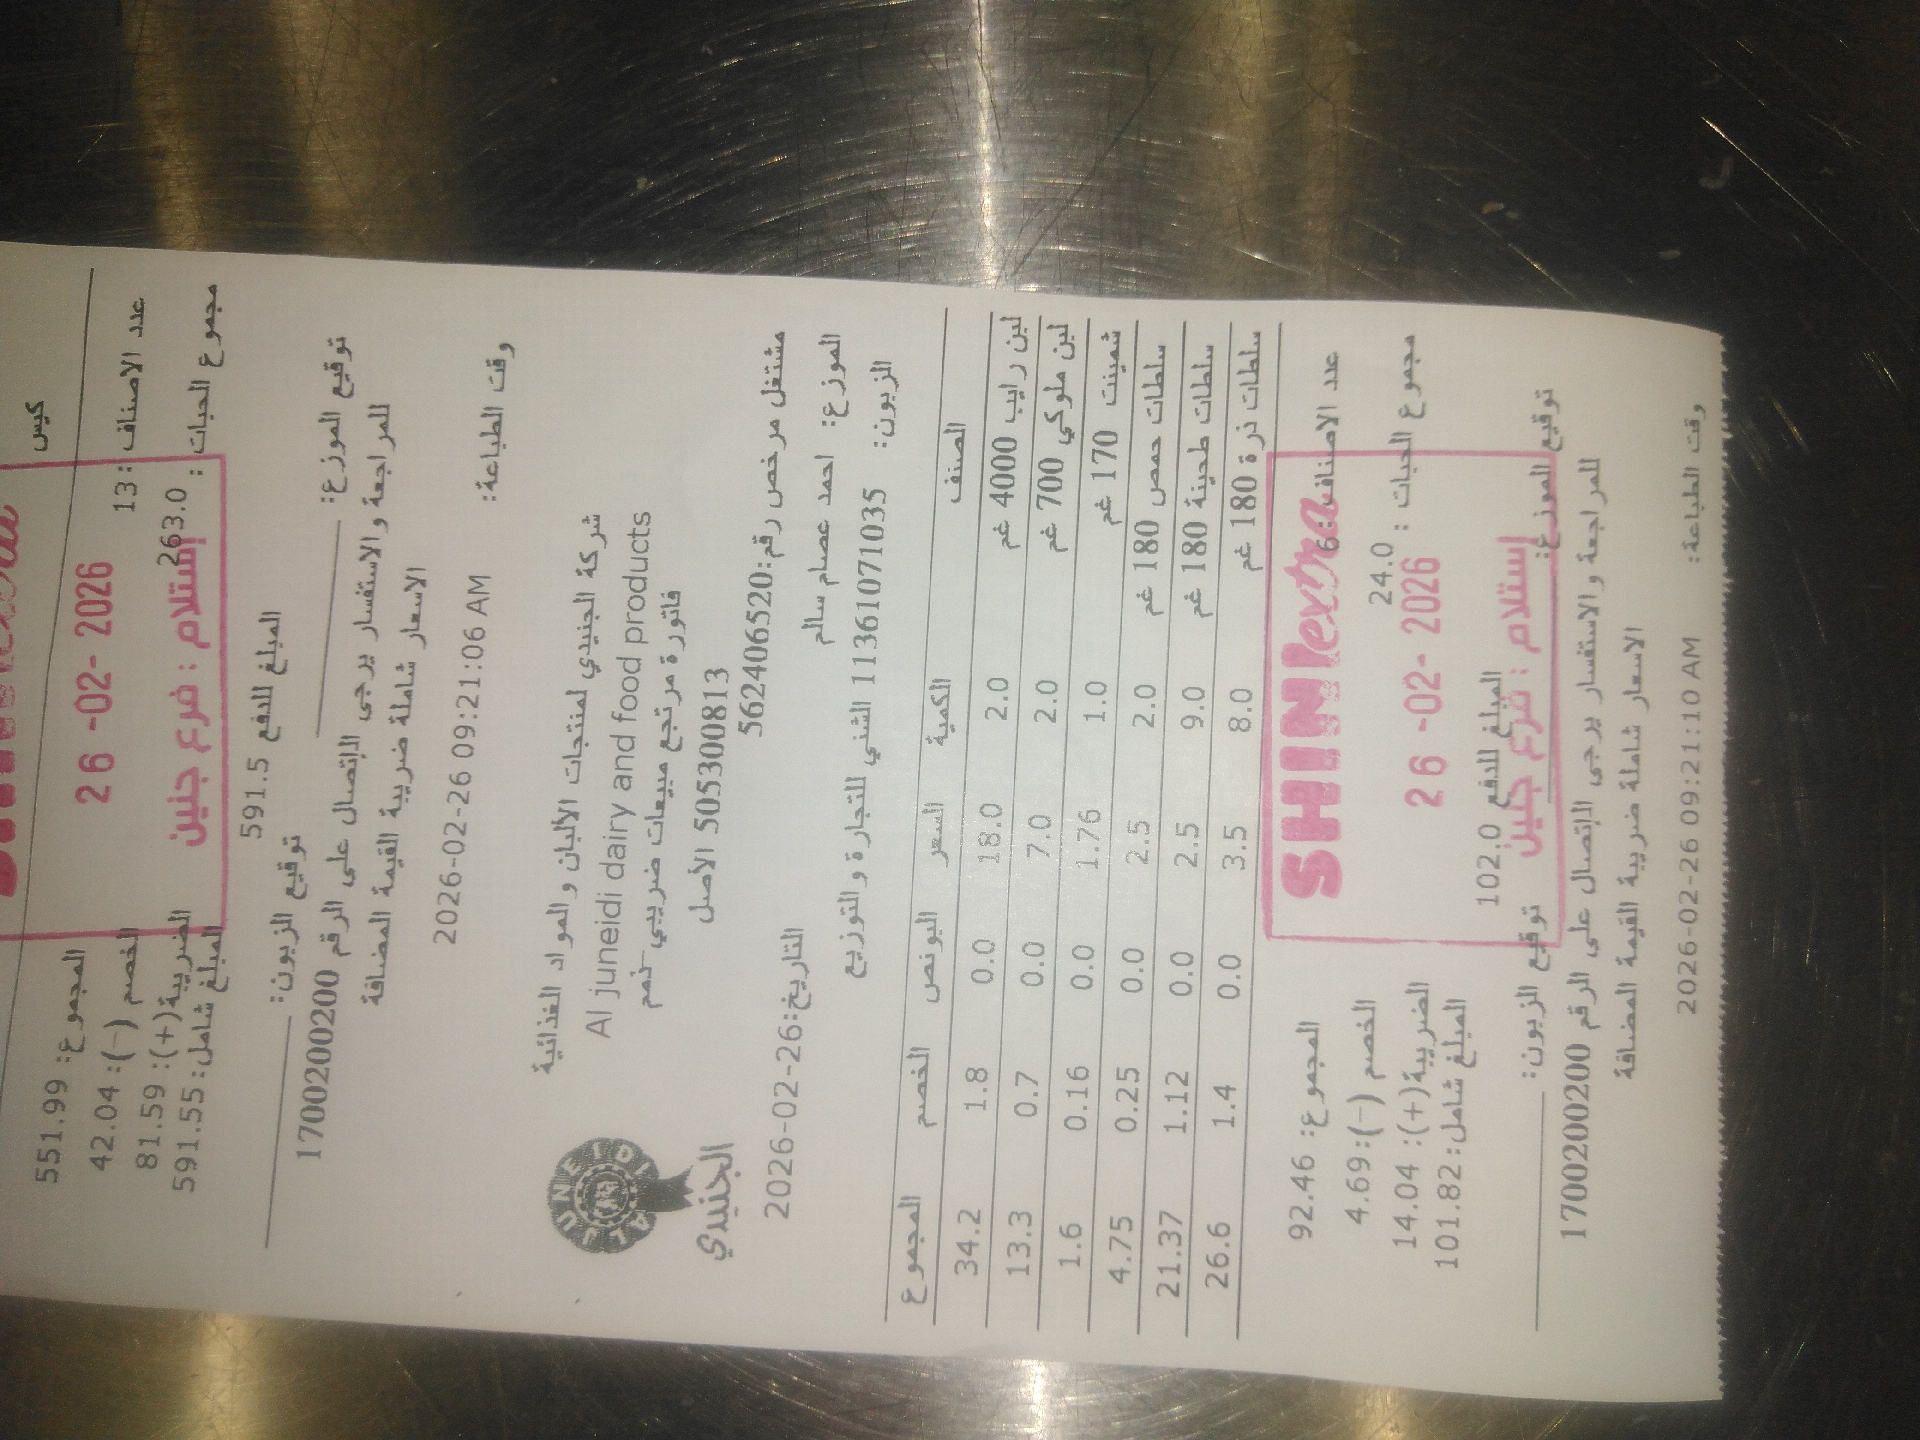 كيس
عدد الاصناف : 13 المجموع: 551.99
26 -02- 2026
مجموع الحبات : 263.0 الخصم (-): 42.04
الضريبة(+): 81.59
استلام : فرع جنين
المبلغ شامل: 591.55
المبلغ للدفع 591.5
توقيع الموزع: توقيع الزبون:
للمراجعة والاستفسار يرجى الإتصال على الرقم 1700200200
الاسعار شاملة ضريبة القيمة المضافة
وقت الطباعة: 2026-02-26 09:21:06 AM
شركة الجنيدي لمنتجات الألبان والمواد الغذائية
Al juneidi dairy and food products
AL JUNEIDI
الجنيدي
فاتورة مرتجع مبيعات ضريبي
505300813 الاصل
مشتغل مرخص رقم:562406520
الموزع: احمد عصام سالم التاريخ:26-02-2026
الزبون: 11361071035 الشني للتجارة والتوزيع
الصنف الكمية السعر البونص الخصم المجموع
لبن رايب 4000 غم 2.0 18.0 0.0 1.8 34.2
لبن ملوكي 700 غم 2.0 7.0 0.0 0.7 13.3
شمينت 170 غم 1.0 1.76 0.0 0.16 1.6
سلطات حمص 180 غم 2.0 2.5 0.0 0.25 4.75
سلطات طحينة 180 غم 9.0 2.5 0.0 1.12 21.37
سلطات ذرة 180 غم 8.0 3.5 0.0 1.4 26.6
SHINI extra
عدد الاصناف :6 المجموع: 92.46
مجموع الحبات : 24.0 الخصم (-): 4.69
26 -02- 2026
الضريبة(+): 14.04
المبلغ شامل: 101.82
المبلغ للدفع 102.0
استلام : فرع جنين
توقيع الموزع: توقيع الزبون:
للمراجعة والاستفسار يرجى الإتصال على الرقم 1700200200
الاسعار شاملة ضريبة القيمة المضافة
وقت الطباعة: 2026-02-26 09:21:10 AM